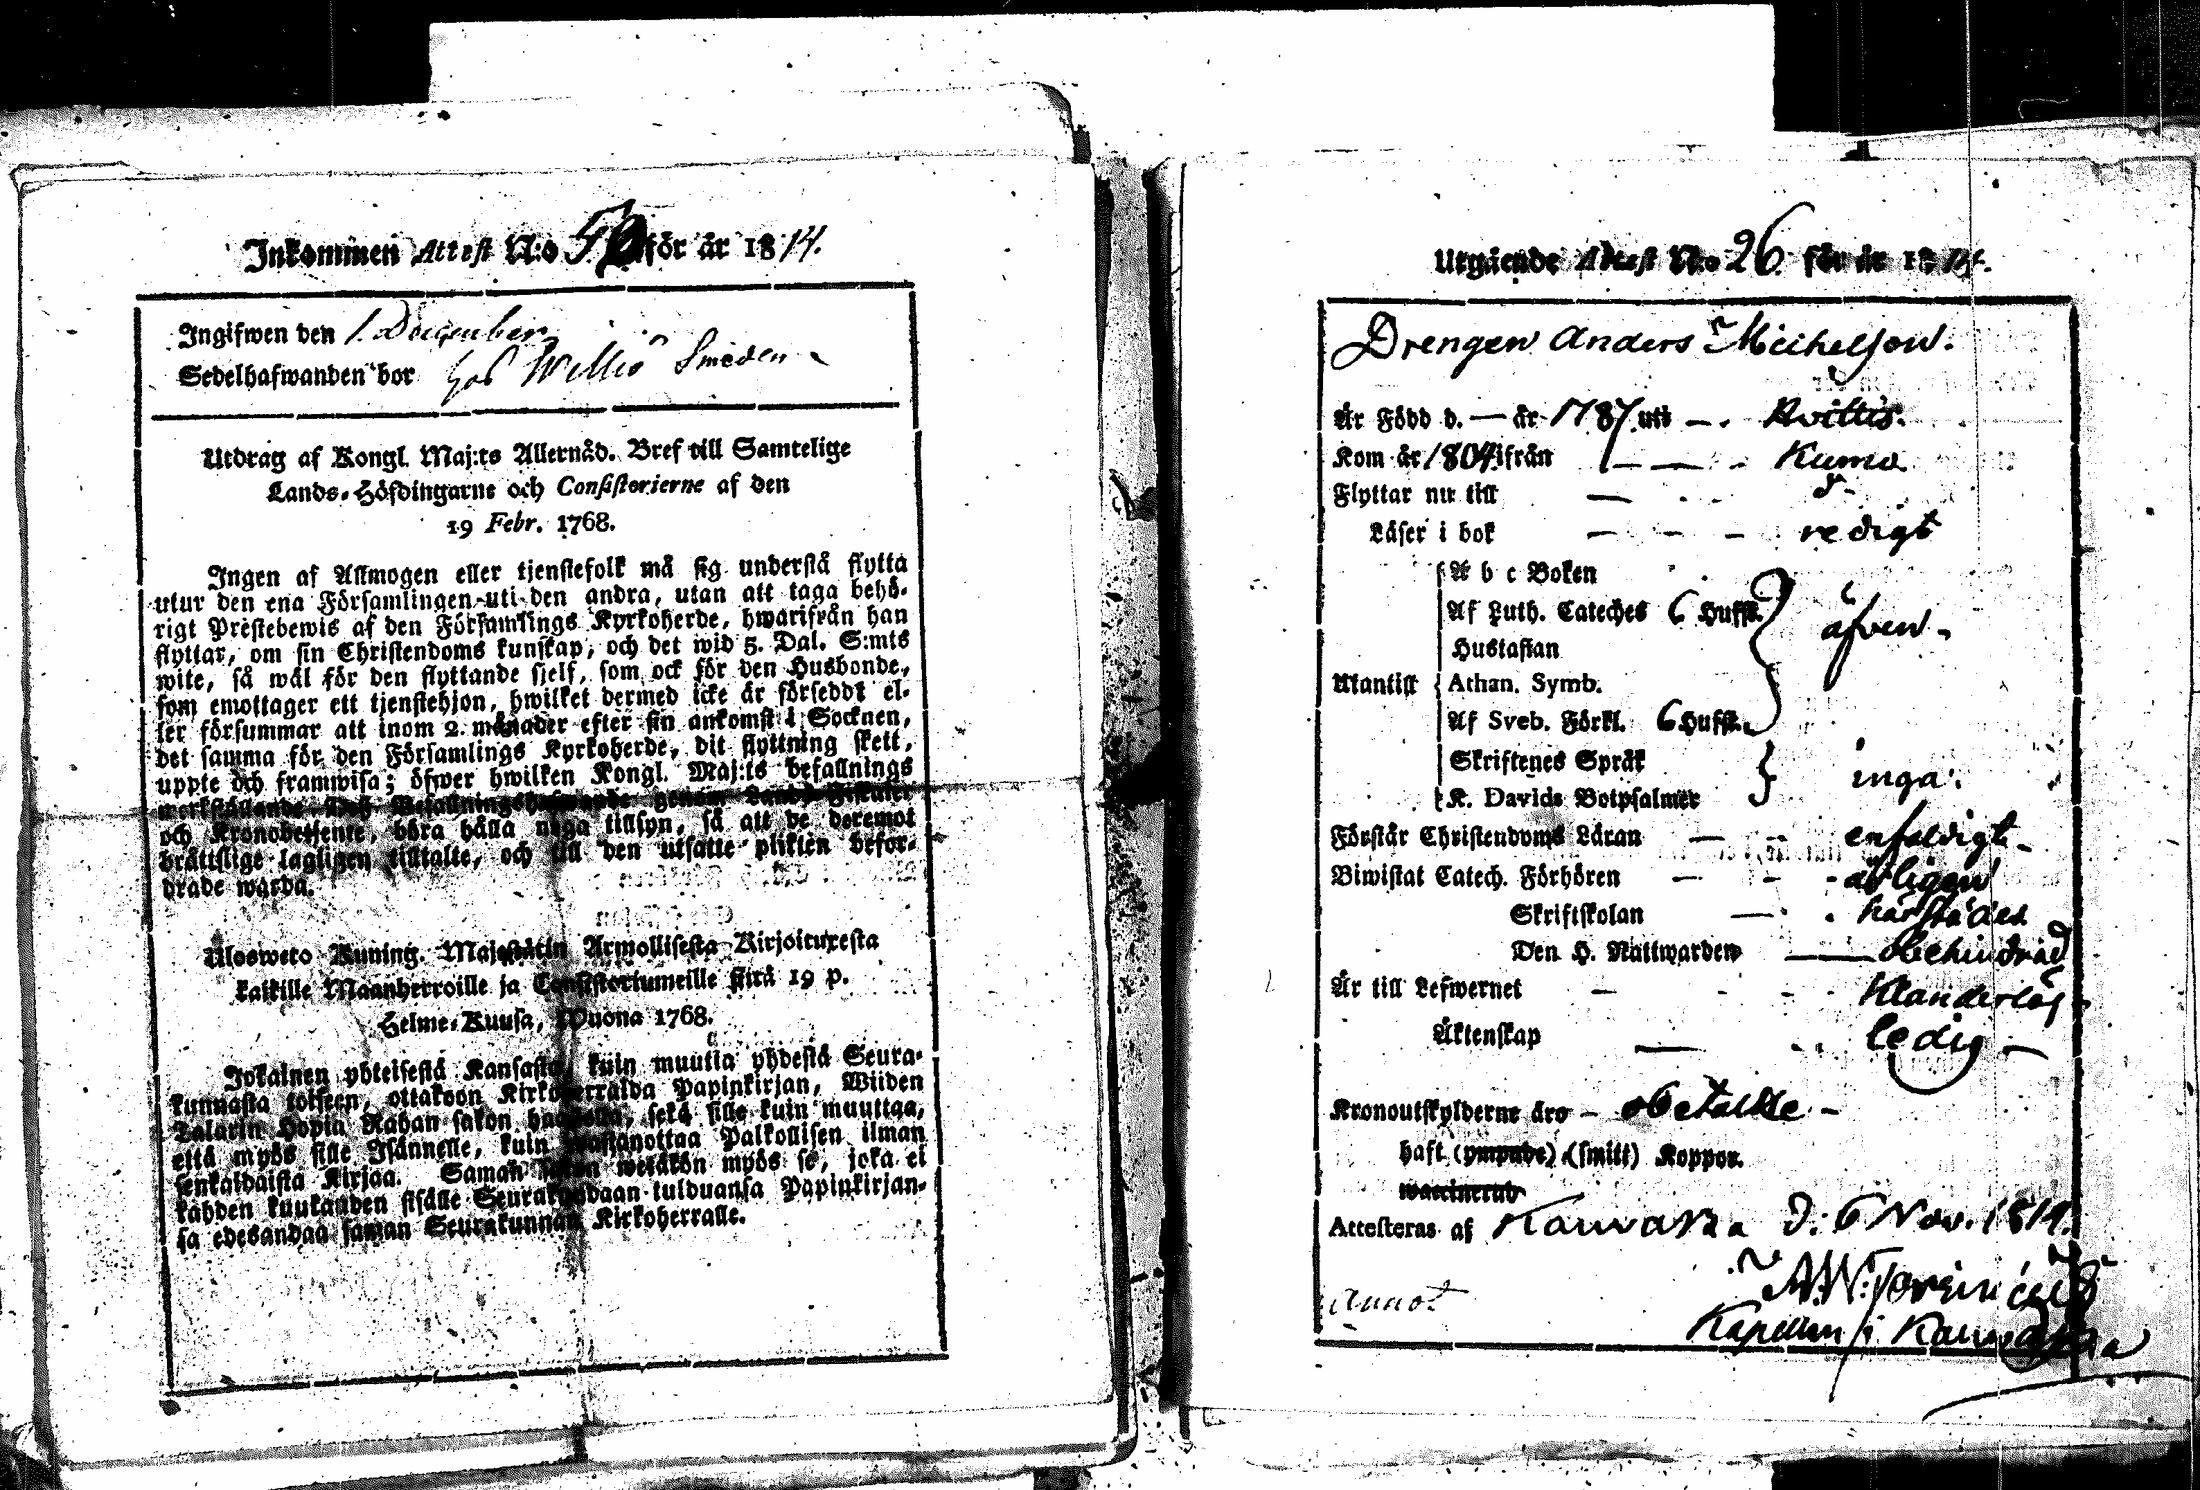 Inkommen Attest N:o 56 för år 1814.
Ingifwen den 1. December
Sedelhafwanden bor hos Willio Smeden
Utdrag af Kongl. Maj:ts Allernåd. Bref till Samtelige
Lands-Höfdingarne och Consistorierne af den
19 Febr. 1768.
Ingen af Allmogen eller tjenstefolk må sig understå flytta
utur den ena Församlingen uti den andra, utan att taga behö-
rigt Prestebewis af den Församlings Kyrkoherde, hwarifrån han
flyttar, om sin Christendoms kunskap, och det wid 5. Dal. S:mts
wite, så wäl för den flyttande sjelf, som ock för den Husbonde,
som emottager ett tjenstehjon, hwilket dermed icke är försedt el-
ler försummar att inom 2. månader efter sin ankomst i Socknen,
det samma för den Församlings Kyrkoherde, dit flyttning skett,
uppte och framwisa; öfwer hwilken Kongl. Maj:ts befallnings
werkställande Dess Befallningshafwande genom Lands Fiskaler
och Kronobetjente, böra hålla noga tillsyn, så att de deremot
bråttslige lagligen tilltalte, och till den utsatte plikten befor-
drade warda.
Ulosweto Kuning. Majestätin Armollisesta Kirjoituxesta
kaikille Maanherroille ja Consistoriumeille siitä 19 p.
Helme-Kuusa, Wuona 1768.
Jokainen yhteisestä Kansasta, kuin muutta yhdestä Seura-
kunnasta toiseen, ottakoon Kirkoherralda Papinkirjan, Wiiden
Talarin Hopia Rahan sakon haastolla, sekä sille kuin muuttaa,
että myös sille Isännelle, kuin wastanottaa Palkollisen ilman
senkaldaista Kirjaa. Saman sakon wetäkön myös se, joka ei
kahden kuukauden sisälle Seurakundaan tulduansa Papinkirjan-
sa edesandaa saman Seurakunnan Kirkoherralle.
Utgående Attest N:o 26. för år 1814.
Drengen Anders Michelson.
Är Född d. — år 1787. uti — . Hvittis.
Kom år 1804 ifrån — — - Kumo
Flyttar nu till — d-
Läser i bok — - - redigt
A b c Boken
Af Luth. Cateches 6 Hufst.
Hustaflan
äfven -
Utantill Athan. Symb.
Af Sveb. Förkl. 6 Hufst.
Skriftenes Språk
inga.
K. Davids Botpsalmer
Förstår Christendoms Läran — - enfaldigt -
Biwistat Catech. Förhören — - - årligen
Skriftskolan — . härstädes
Den H. Nattwarden — obehindrad
Är till Lefwernet — - - klanderlös
Äktenskap — ledig —
Kronoutskylderne äro - obetalte -
haft (ympade) (smitt) Koppor.
waccinerad
Attesteras af Kauvatsa d: 6 Nov. 1814.
Annot
Kapellan i Kauvatsa